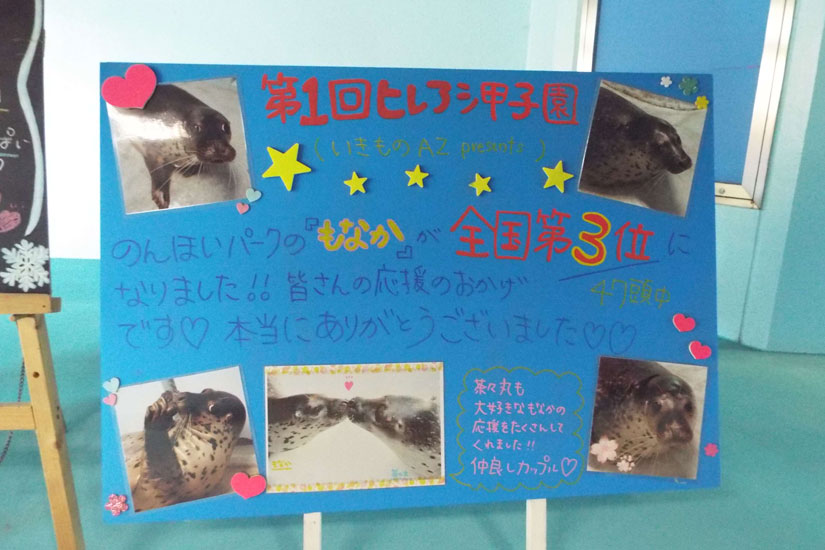 第1回ヒレアシ甲子園
(いきものAZ presents)
のんほいパークの『もなか』が 全国第3位に
なりました!! 皆さんの応援のおかげ
47頭中
です♡ 本当にありがとうございました♡♡
茶々丸も
大好きなもなかの
応援をたくさんして
くれました!!
仲良しカップル♡
もなか